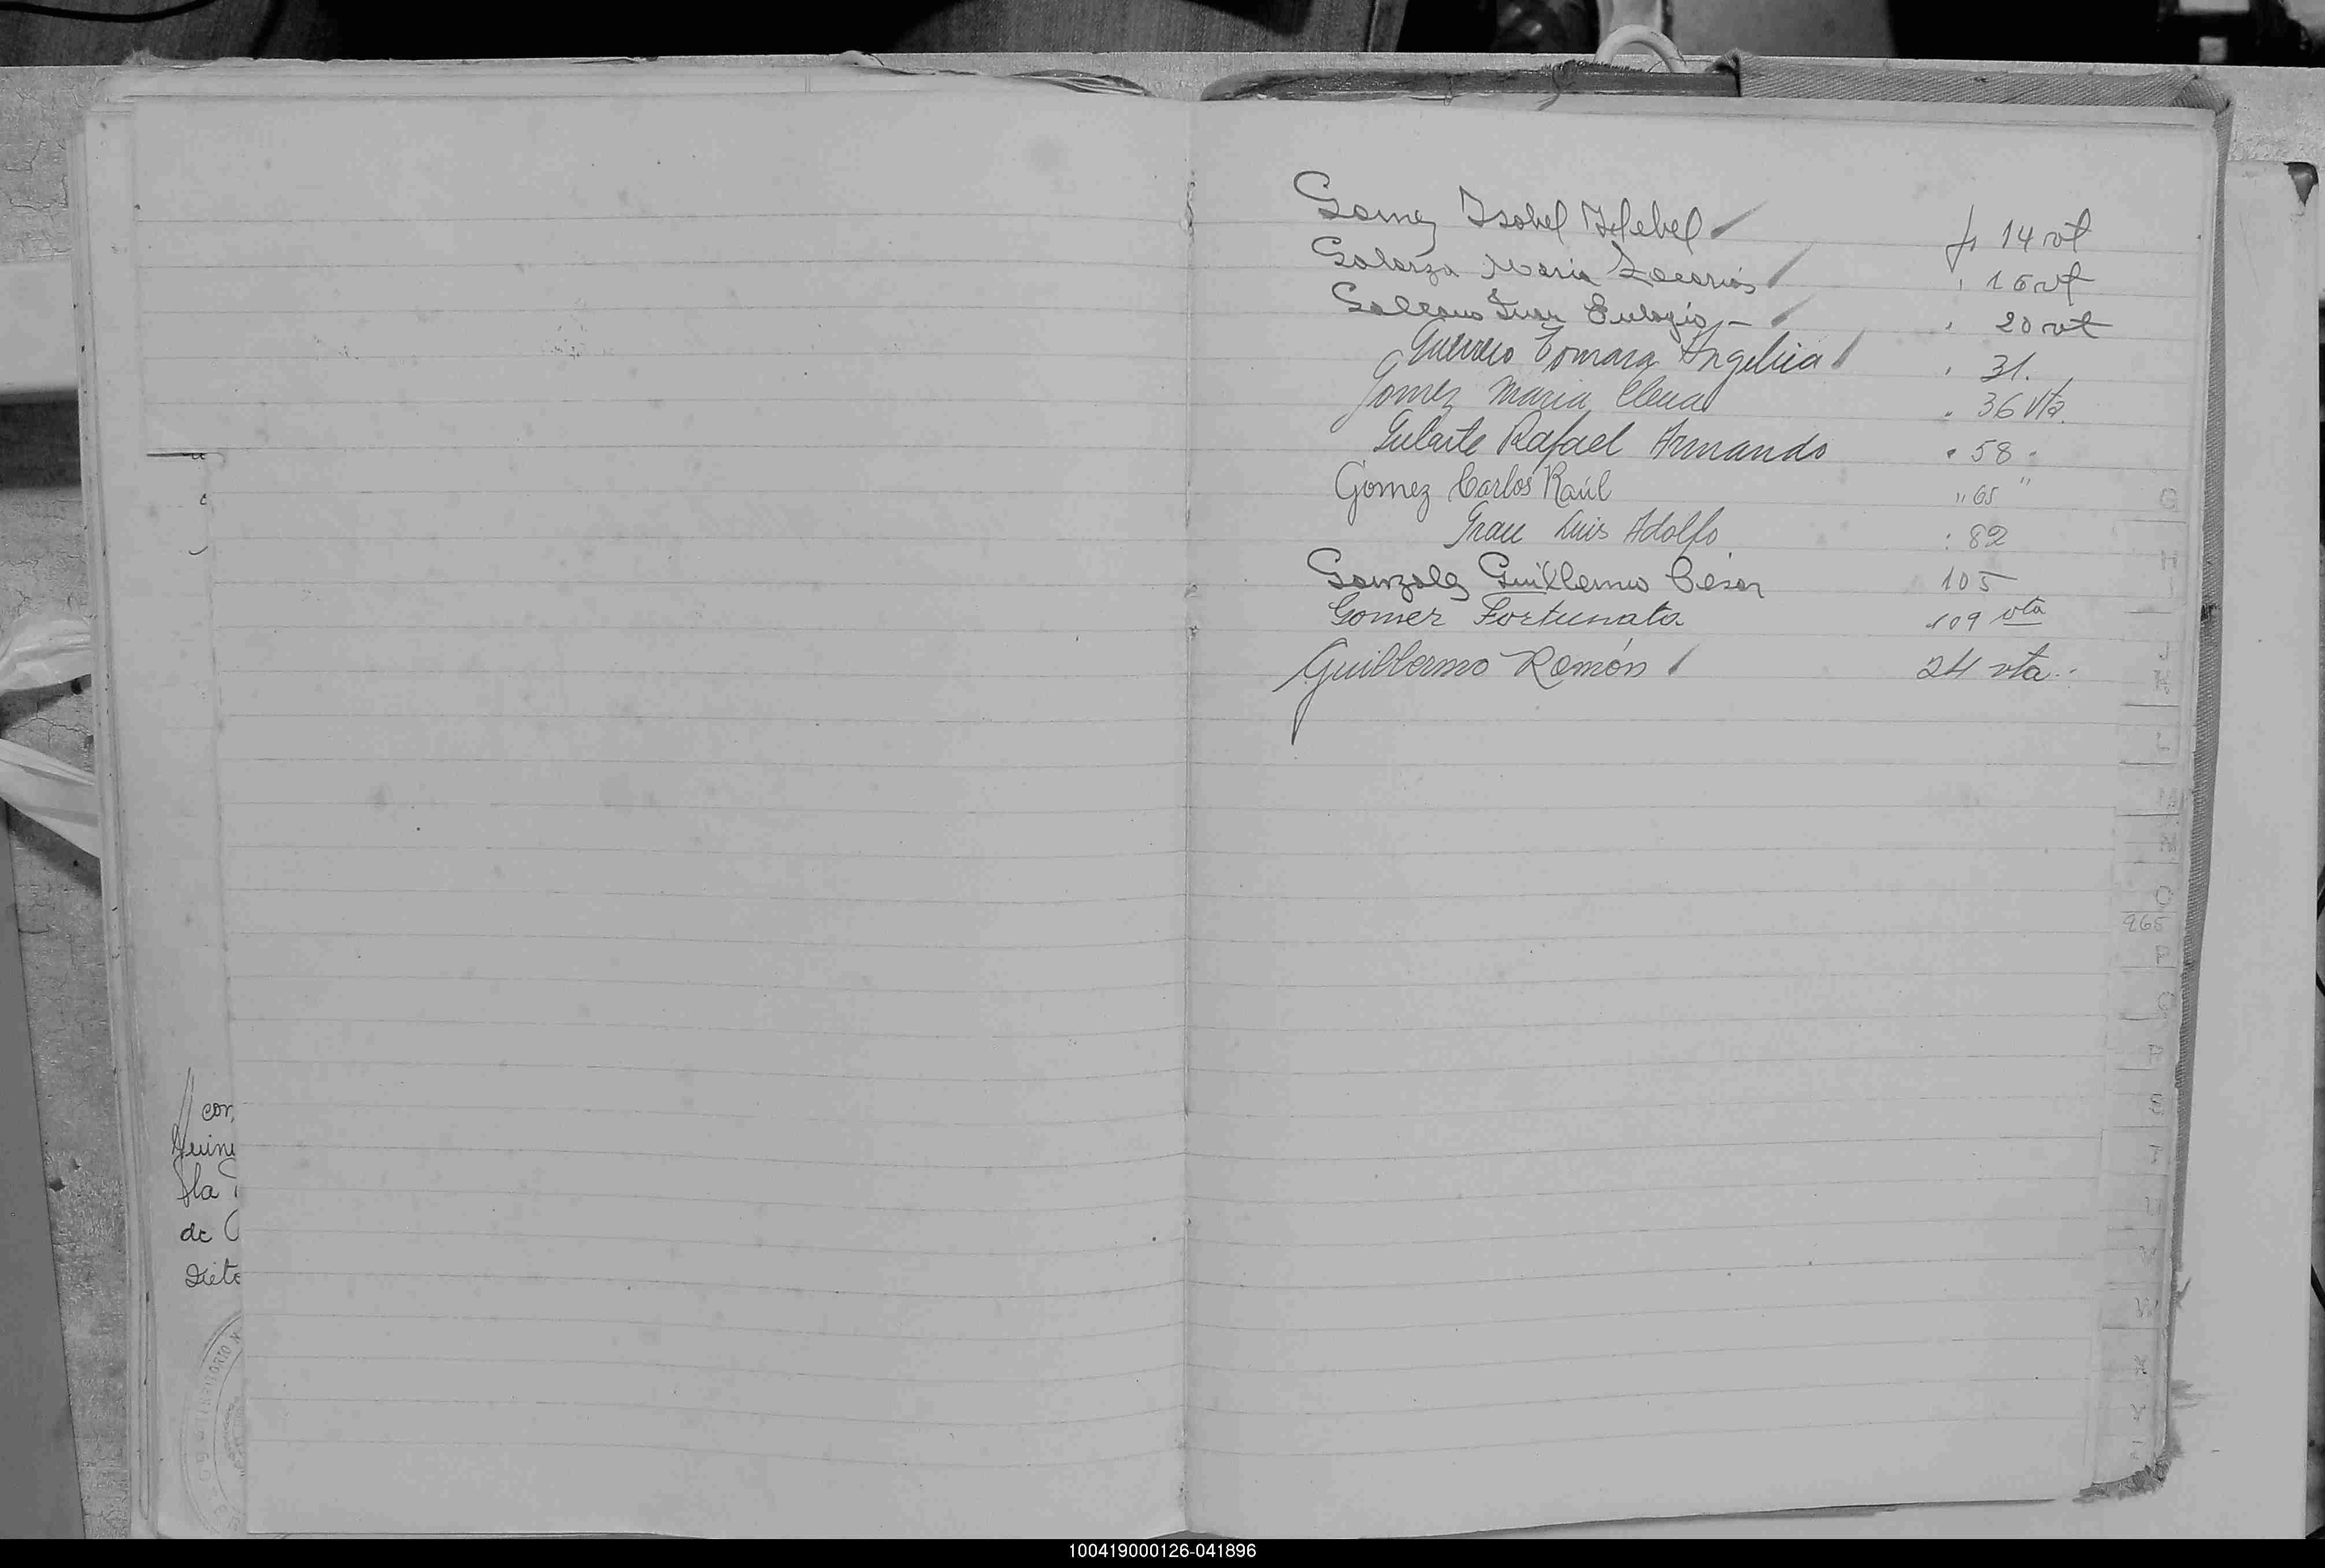 con
la
de
Gomez Isabel Hebel f, 14 vt
Galarza Maria Zacarias , 16 vt
Galeano Juan Eulogio - , 20 vt
Guerrero Tomasa Angelica , 31.
Gomez Maria Elena . 36 vta.
Gularte Rafael Armando . 58 .
Gomez Carlos Raúl " 65 "
Grau Luis Adolfo : 82
Gonzalez Guillermo César 105
Gomez Fortunata 109 vta
Guillermo Ramón 24 vta.
G
O
965
P
100419000126-041896